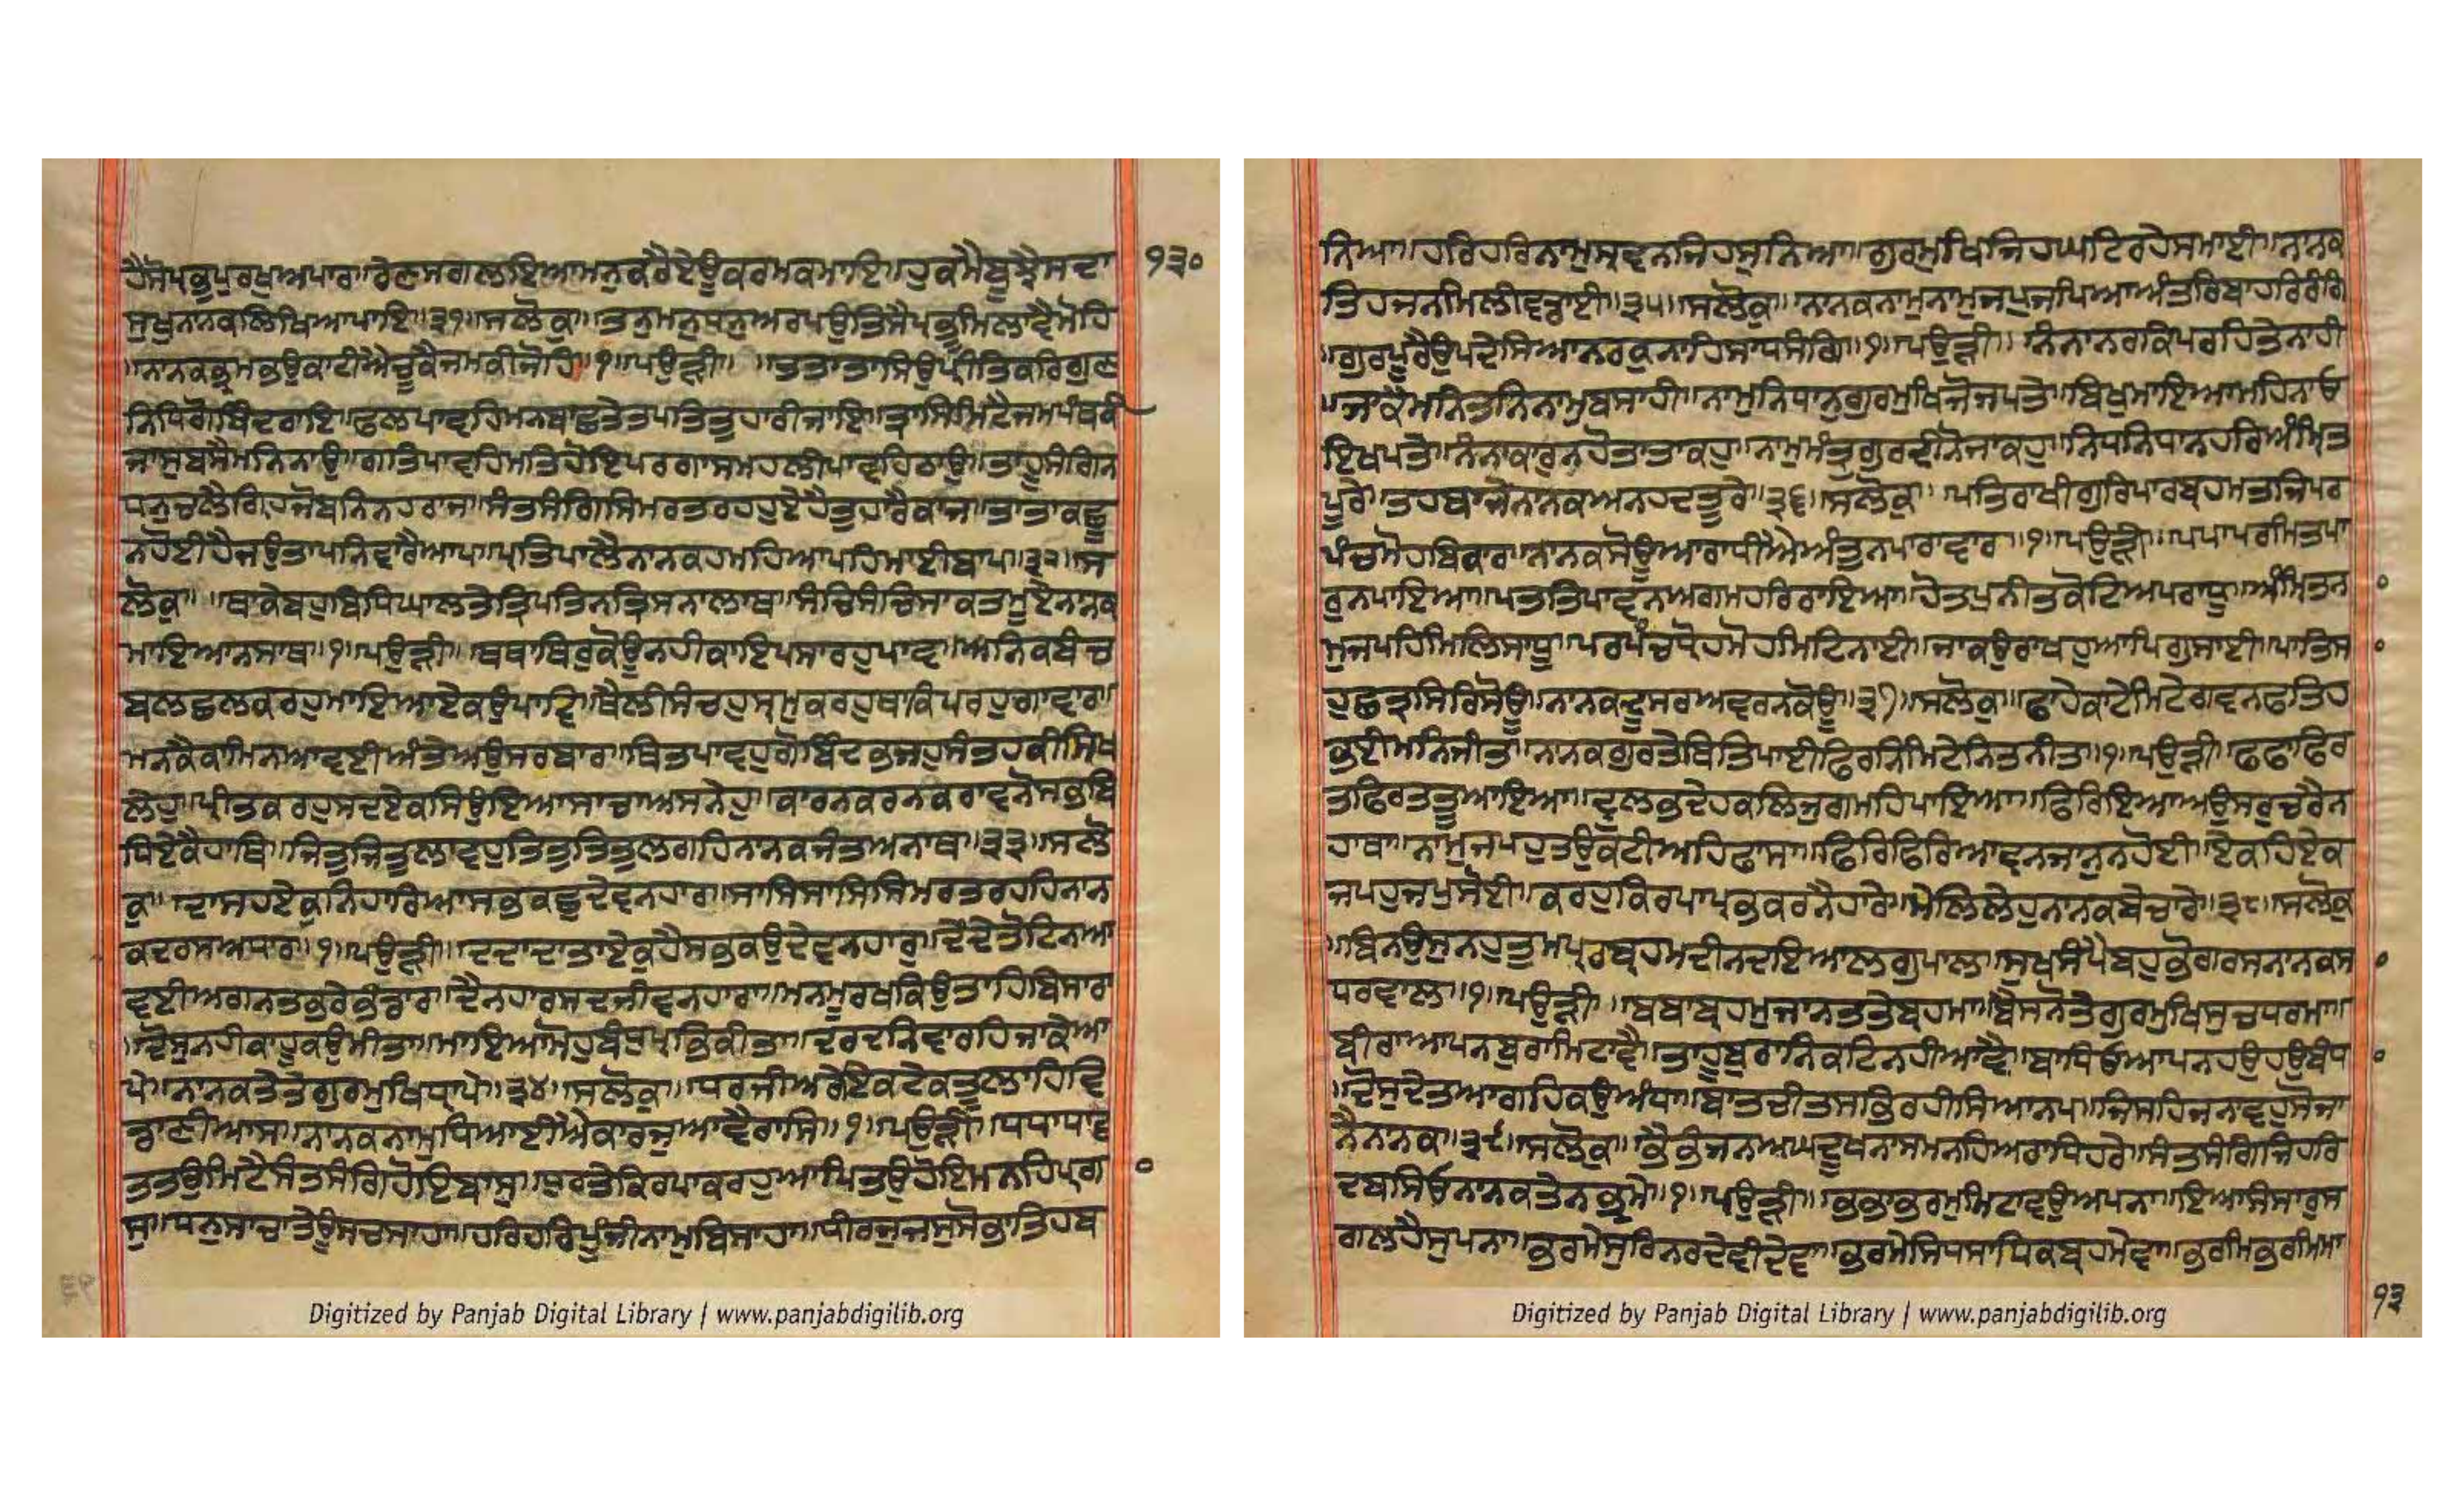 ਹੈਸੋਪਕੁਪੁਰਖੁਅਪਾਰਾ॥ਰੇਣਸਗਲਇਆਮਨੁਕਰੈਏਊਕਰਮਕਮਾਇ॥ਹੁਕਮੈਬੂਝੈਸਦਾ
੧੩੦
ਸੁਖੁਨਾਨਕਲਿਖਿਆਪਾਇ॥੩੧॥ਸਲੋਕੁ॥ਤਨੁਮਨੁਧਨੁਅਰਪਉਤਿਸੈਪ੍ਰਭੂਮਿਲਾਵੈਮੋਹਿ
॥ਨਾਨਕਭ੍ਰਮਭਉਕਾਟੀਐਚੂਕੈਜਮਕੀਜੋਹਿ॥੧॥ਪਉੜੀ॥ ॥ਤਤਾਤਾਸਿਉਪ੍ਰੀਤਿਕਰਿਗੁਣ
ਨਿਧਿਗੋਬਿੰਦਰਾਇ॥ਫਲਪਾਵਹਿਮਨਬਾਛਤੇਤਪਤਿਤੁਹਾਰੀਜਾਇ॥ਤ੍ਰਾਸਮਿਟੈਜਮਪੰਥਕੀ
ਜਾਸੁਬਸੈਮਨਿਨਾਉ॥ਗਤਿਪਾਵਹਿਮਤਿਹੋਇਪਰਗਾਸਮਹਲੀਪਾਵਹਿਠਾਉ॥ਤਾਹੂਸੰਗਿਨ
ਧਨੁਚਲੈਗ੍ਰਿਹਜੋਬਨਿਨਹਰਾਜ॥ਸੰਤਸੰਗਿਸਿਮਰਤਰਹਹੁਇਹੈਤੁਹਾਰੈਕਾਜ॥ਤਾਤਾਕਛੂ
ਨਹੋਈਹੈਜਉਤਾਪਨਿਵਾਰੈਆਪ॥ਪ੍ਰਤਿਪਾਲੈਨਾਨਕਹਮਹਿਆਪਹਿਮਾਈਬਾਪ॥੩੨॥ਸ
ਲੋਕੁ॥ ਥਾਕੇਬਹੁਬਿਧਿਘਾਲਤੇਤ੍ਰਿਪਤਿਨਤ੍ਰਿਸਨਾਲਾਥ॥ਸੰਚਿਸੰਚਿਸਾਕਤਮੂਏਨਾਨਕ
ਮਾਇਆਨਸਾਥ॥੧॥ਪਉੜੀ॥ ਥਥਾਥਿਰੁਕੋਊਨਹੀਕਾਇਪਸਾਰਹੁਪਾਵ॥ਅਨਿਕਬੰਚ
ਬਲਛਲਕਰਹੁਮਾਇਆਏਕਉਪਾਵ॥ਥੈਲੀਸੰਚਹੁਸ੍ਰਮੁਕਰਹੁਥਾਕਿਪਰਹੁਗਾਵਾਰ॥
ਮਨਕੈਕਾਮਿਨਆਵਈਅੰਤੇਅਉਸਰਬਾਰ॥ਥਿਤਿਪਾਵਹੁਗੋਬਿੰਦਭਜਹੁਸੰਤਹਕੀਸਿਖ
ਲੇਹੁ॥ਪ੍ਰੀਤਕਰਹੁਸਦਏਕਸਿਉਇਆਸਾਚਾਅਸਨੇਹੁ॥ਕਾਰਨਕਰਨਕਰਾਵਨੋਸਭਬਿ
ਧਿਏਕੈਹਾਥਿ॥ਜਿਤੁਜਿਤੁਲਾਵਹੁਤਿਤੁਤਿਤੁਲਗਹਿਨਾਨਕਜੰਤਅਨਾਥ॥੩੩॥ਸਲੋ
ਕੁ॥ ਦਾਸਹਏਕੁਨਿਹਾਰਿਆਸਭੁਕਛੁਦੇਵਨਹਾਰ॥ਸਾਸਿਸਾਸਿਸਿਮਰਤਰਹਹਿਨਾਨ
ਕਦਰਸਅਧਾਰ॥੧॥ਪਉੜੀ॥ ਦਦਾਦਾਤਾਏਕੁਹੈਸਭਕਉਦੇਵਨਹਾਰੁ॥ਦੇਂਦੇਤੋਟਿਨਆ
ਵਈਅਗਨਤਭਰੇਭੰਡਾਰ॥ਦੈਨਹਾਰਸਦਜੀਵਨਹਾਰਾ॥ਮਨਮੂਰਖਕਿਉਤਾਹਿਬਿਸਾਰਾ
॥ਦੋਸੁਨਹੀਕਾਹੂਕਉਮੀਤਾ॥ਮਾਇਆਮੋਹਬੰਧੁਪ੍ਰਭਿਕੀਤਾ॥ਦਰਦਨਿਵਾਰਹਿਜਾਕੇਆ
ਪੇ॥ਨਾਨਕਤੇਤੇਗੁਰਮੁਖਿਧ੍ਰਾਪੇ॥੩੪॥ਸਲੋਕੁ॥ ਧਰਜੀਅਰੇਇਕਟੇਕਤੂਲਾਹਿਵਿ
ਡਾਣੀਆਸ॥ਨਾਨਕਨਾਮੁਧਿਆਈਐਕਾਰਜੁਆਵੈਰਾਸਿ॥੧॥ਪਉੜੀ॥ ਧਧਾਧਾਵ
ਤਤਉਮਿਟੈਸੰਤਸੰਗਿਹੋਇਬਾਸੁ॥ਧੁਰਤੇਕਿਰਪਾਕਰਹੁਆਪਿਤਉਹੋਇਮਨਹਿਪ੍ਰਗਾ
ਸੁ॥ਧਨੁਸਾਚਾਤੇਊਸਚਸਾਹਾ॥ਹਰਿਹਰਿਪੂੰਜੀਨਾਮੁਬਿਸਾਹਾ॥ਧੀਰਜੁਜਸੁਸੋਭਾਤਿਹਬ
ਨਿਆ॥ਹਰਿਹਰਿਨਾਮੁਸ੍ਰਵਨਜਿਹਸੁਨਿਆ॥ਗੁਰਮੁਖਿਜਿਹਘਟਿਰਹੇਸਮਾਈ॥ਨਾਨਕ
ਤਿਹਜਨਮਿਲੀਵਡਾਈ॥੩੫॥ਸਲੋਕੁ॥ ਨਾਨਕਨਾਮੁਨਾਮੁਜਪੁਜਪਿਆਅੰਤਰਿਬਾਹਰਿਰੰਗਿ
॥ਗੁਰਪੂਰੈਉਪਦੇਸਿਆਨਰਕੁਨਾਹਿਸਾਧਸੰਗਿ॥੧॥ਪਉੜੀ॥ ਨੰਨਾਨਰਕਿਪਰਹਿਤੇਨਾਹੀ
॥ਜਾਕੈਮਨਿਤਨਿਨਾਮੁਬਸਾਹੀ॥ਨਾਮੁਨਿਧਾਨੁਗੁਰਮੁਖਿਜੋਜਪਤੇ॥ਬਿਖੁਮਾਇਆਮਹਿਨਾਓ
ਇਖਪਤੇ॥ਨੰਨਾਕਾਰੁਨਹੋਤਾਤਾਕਹੁ॥ਨਾਮੁਮੰਤ੍ਰੁਗੁਰਦੀਨੋਜਾਕਹੁ॥ਨਿਧਨਿਧਾਨਹਰਿਅੰਮ੍ਰਿਤ
ਪੂਰੇ॥ਤਹਬਾਜੇਨਾਨਕਅਨਹਦਤੂਰੇ॥੩੬॥ਸਲੋਕੁ॥ ਪਤਿਰਾਖੀਗੁਰਿਪਾਰਬ੍ਰਹਮਤਜਿਪਰ
ਪੰਚਮੋਹਬਿਕਾਰ॥ਨਾਨਕਸੋਊਆਰਾਧੀਐਅੰਤੁਨਪਾਰਾਵਾਰ॥੧॥ਪਉੜੀ॥ ਪਪਾਪਰਮਿਤਪਾ
ਰੁਨਪਾਇਆ॥ਪਤਤਿਪਾਵਨਅਗਮਹਰਿਰਾਇਆ॥ਹੋਤਪੁਨੀਤਕੋਟਿਅਪਰਾਧੂ॥ਅੰਮ੍ਰਿਤਨਾ
੦
ਮੁਜਪਹਿਮਿਲਿਸਾਧੂ॥ਪਰਪੰਚਧ੍ਰੋਹਮੋਹਮਿਟਨਾਈ॥ਜਾਕਉਰਾਖਹੁਆਪਿਗੁਸਾਈ॥ਪਾਤਿਸਾ
੦
ਹੁਛਤ੍ਰਸਿਰਿਸੋਊ॥ਨਾਨਕਦੂਸਰਅਵਰਨਕੋਊ॥੩੭॥ਸਲੋਕੁ॥ ਫਾਹੇਕਾਟੇਮਿਟੇਗਵਨਫਤਿਹ
ਭਈਮਨਿਜੀਤ॥ਨਾਨਕਗੁਰਤੇਥਿਤਿਪਾਈਫਿਰਨਿਮਿਟੇਨਿਤਨੀਤ॥੧॥ਪਉੜੀ॥ ਫਫਾਫਿਰ
ਤਫਿਰਤਤੂਆਇਆ॥ਦ੍ਰੁਲਭਦੇਹਕਲਿਜੁਗਮਹਿਪਾਇਆ॥ਫਿਰਿਇਆਅਉਸਰੁਚਰੈਨ
ਹਾਥਾ॥ਨਾਮੁਜਪਹੁਤਉਕਟੀਅਹਿਫਾਸਾ॥ਫਿਰਿਫਿਰਿਆਵਨਜਾਨੁਨਹੋਈ॥ਏਕਹਿਏਕ
ਜਪਹੁਜਪੁਸੋਈ॥ਕਰਹੁਕਿਰਪਾਪ੍ਰਭਕਰਨੈਹਾਰੇ॥ਮੇਲਿਲੇਹੁਨਾਨਕਬੇਚਾਰੇ॥੩੮॥ਸਲੋਕੁ
॥ਬਿਨਉਸੁਨਹੁਤੁਮਪਾਰਬ੍ਰਹਮਦੀਨਦਇਆਲਗੁਪਾਲ॥ਸੁਖਸੰਪੈਬਹੁਭੋਗਰਸਨਾਨਕਸਾ
੦
ਧਰਵਾਲ॥੧॥ਪਉੜੀ॥ ਬਬਾਬ੍ਰਹਮੁਜਾਨਤਤੇਬ੍ਰਹਮਾ॥ਬੈਸਨੋਤੇਗੁਰਮੁਖਿਸੁਚਧਰਮਾ॥
ਬੀਰਾਆਪਨਬੁਰਾਮਿਟਾਵੈ॥ਤਾਹੂਬੁਰਾਨਿਕਟਿਨਹੀਆਵੈ॥ਬਾਧਿਓਆਪਨਹਉਹਉਬੰਧਾ
੦
॥ਦੋਸੁਦੇਤਆਗਹਿਕਉਅੰਧਾ॥ਬਾਤਚੀਤਸਭਿਰਹੀਸਿਆਨਪ॥ਜਿਸਹਿਜਨਾਵਹੁਸੋਜਾ
ਨੈਨਾਨਕ॥੩੯॥ਸਲੋਕੁ॥ ਭੈਭੰਜਨਅਘਦੂਖਨਾਸਮਨਹਿਅਰਾਧਿਹਰੇ॥ਸੰਤਸੰਗਿਜਿਹਰਿ
ਦਬਸਿਓਨਾਨਕਤੇਨਭ੍ਰਮੇ॥੧॥ਪਉੜੀ॥ ਭਭਾਭਰਮੁਮਿਟਾਵਉਅਪਨਾ॥ਇਆਸੰਸਾਰੁਸ
ਗਲਹੈਸੁਪਨਾ॥ਭਰਮੇਸੁਰਿਨਰਦੇਵੀਦੇਵਾ॥ਭਰਮੇਸਿਧਸਾਧਿਕਬ੍ਰਹਮੇਵਾ॥ਭਰਮਿਭਰਮਿਮਾ
੧੩
Digitized by Panjab Digital Library | www.panjabdigilib.org
Digitized by Panjab Digital Library | www.panjabdigilib.org